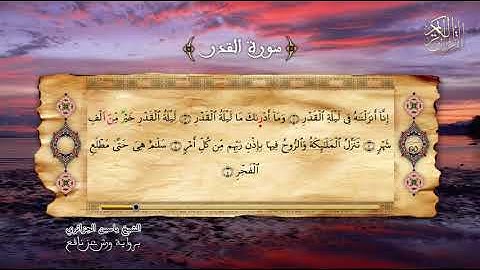 سورة القدر
إِنَّا أَنزَلْنَٰهُ فِى لَيْلَةِ اِ۬لْقَدْرِ ١ وَمَا أَدْر۪ىٰكَ مَا لَيْلَةُ اُ۬لْقَدْرِ ٢ لَيْلَةُ اُ۬لْقَدْرِ خَيْرٌ مِّنَ اَلْفِ
شَهْرٍ ٣ تَنَزَّلُ اُ۬لْمَلَٰٓئِكَةُ وَالرُّوحُ فِيهَا بِإِذْنِ رَبِّهِم مِّن كُلِّ أَمْرٍ ٤ سَلَٰمٌ هِىَ حَتَّىٰ مَطْلَعِ
اِ۬لْفَجْرِ ٥
60
الشيخ ياسين الجزائري
برواية ورش عن نافع